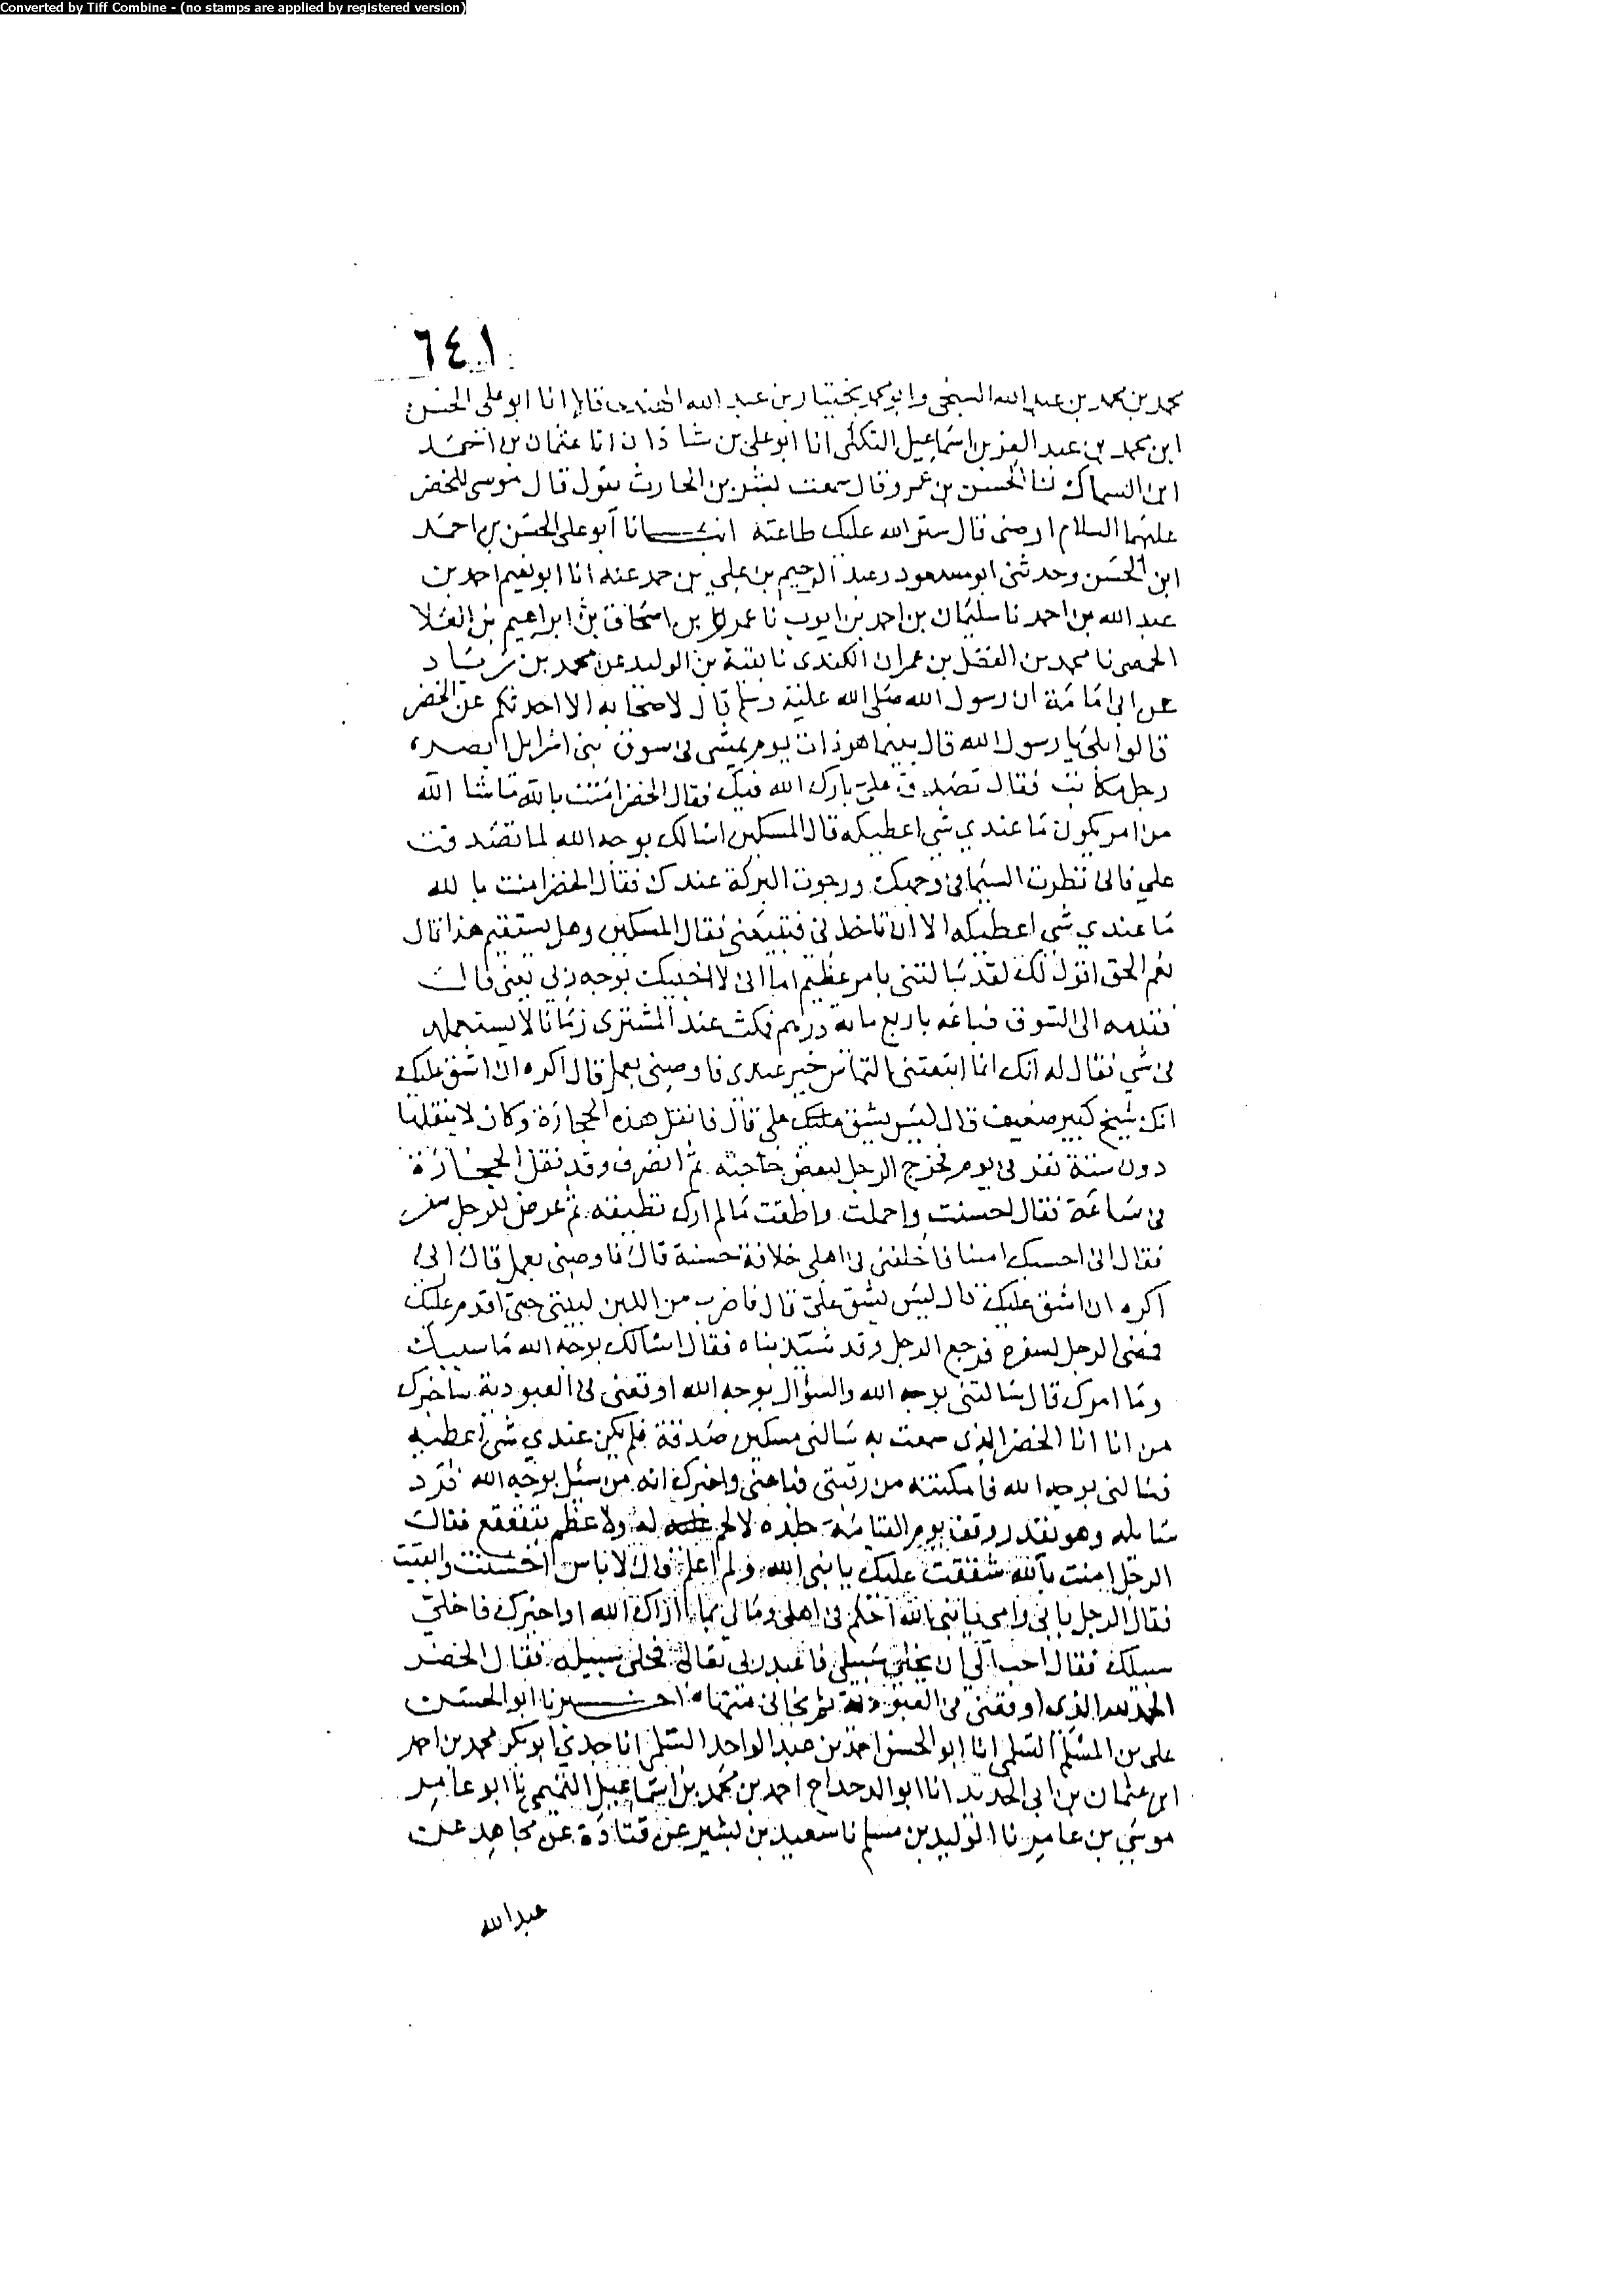 Converted by Tiff Combine - (no stamps are applied by registered version)
٦٤١
محمد بن محمد بن عبد الله السبخي وابو محمد بختيار بن عبد الله الهندي قالا انا ابو علي الحسن
ابن محمد بن عبد العزيز بن اسماعيل التككي انا ابو علي بن شاذان انا عثمان بن احمد
ابن السماك ثنا الحسن بن عمرو قال سمعت بشر بن الحارث يقول قال موسى للخضر
عليهما السلام اوصني قال ستر الله عليك طاعته انبانا ابو علي الحسن بن احمد
ابن الحسن وحدثني ابو مسعود عبد الرحيم بن علي بن حمد عنه انا ابو نعيم احمد بن
عبد الله بن احمد نا سليمان بن احمد بن ايوب نا عمرو بن اسحاق بن ابراهيم بن العلا
الحمصي نا محمد بن الفضل بن عمران الكندي نا بقية بن الوليد عن محمد بن زياد
عن ابي امامة ان رسول الله صلى الله عليه وسلم قال لاصحابه الا احدثكم عن الخضر
قالوا بلى يا رسول الله قال بينما هو ذات يوم يمشي في سوق بني اسرايل ابصره
رجل مكاتب فقال تصدق علي بارك الله فيك فقال الخضر امنت بالله ما شا الله
من امر يكون ما عندي شي اعطيكه قال المسكين اسالك بوجه الله لما تصدقت
علي فاني نظرت السيما في وجهك ورجوت البركة عندك فقال الخضر امنت بالله
ما عندي شي اعطيكه الا ان تاخذني فتبيعني فقال المسكين وهل يستقيم هذا قال
نعم الحق اقول لك لقد سالتني بامر عظيم اما اني لا اخيبك بوجه ربي بعني قال
فقدمه الى السوق فباعه باربع ماية درهم فمكث عند المشتري زمانا لا يستعمله
في شي فقال له انك انما ابتعتني التماس خير عندي فاوصني بعمل قال اكره ان اشق عليك
انك شيخ كبير ضعيف قال ليس يشق علي قال فانقل هذه الحجارة وكان لا ينقلها
دون ستة نفر في يوم فخرج الرجل لبعض حاجته ثم انصرف وقد نقل الحجارة
في ساعة فقال احسنت واجملت واطقت ما لم ارك تطيقه ثم عرض للرجل سفر
فقال اني احسبك امينا فاخلفني في اهلي خلافة حسنة قال فاوصني بعمل قال اني
اكره ان اشق عليك قال ليس يشق علي قال فاضرب من اللبن لبيتي حتى اقدم عليك
فمضى الرجل لسفره فرجع الرجل وقد شيد بناه فقال اسالك بوجه الله ما سبيلك
وما امرك قال سالتني بوجه الله والسؤال بوجه الله اوقعني في العبودية ساخبرك
من انا انا الخضر الذي سمعت به سالني مسكين صدقة فلم يكن عندي شي اعطيه
فسالني بوجه الله فامكنته من رقبتي فباعني واخبرك انه من سئل بوجه الله فرد
سايله وهو يقدر وقف يوم القيامة جلده لا لحم له ولا عظم يتقعقع فقال
الرجل امنت بالله شققت عليك يا نبي الله ولم اعلم قال لا باس احسنت وابقيت
فقال الرجل بابي وامي يا نبي الله احكم في اهلي ومالي بما اراك الله او اخيرك فاخلي
سبيلك فقال احب الي ان يخلي سبيلي فاعبد ربي تعالى فخلى سبيله فقال الخضر
الحمد لله الذي اوقعني في العبودية ثم نجاني منها اخبرنا ابو الحسن
علي بن المسلم السلمي انا ابو الحسن احمد بن عبد الواحد السلمي انا جدي ابو بكر محمد بن احمد
ابن عثمان بن ابي الحديد انا ابو الدحداح احمد بن محمد بن اسماعيل التميمي نا ابو عامر
موسى بن عامر نا الوليد بن مسلم نا سعيد بن بشير عن قتادة عن مجاهد عن
عبد الله